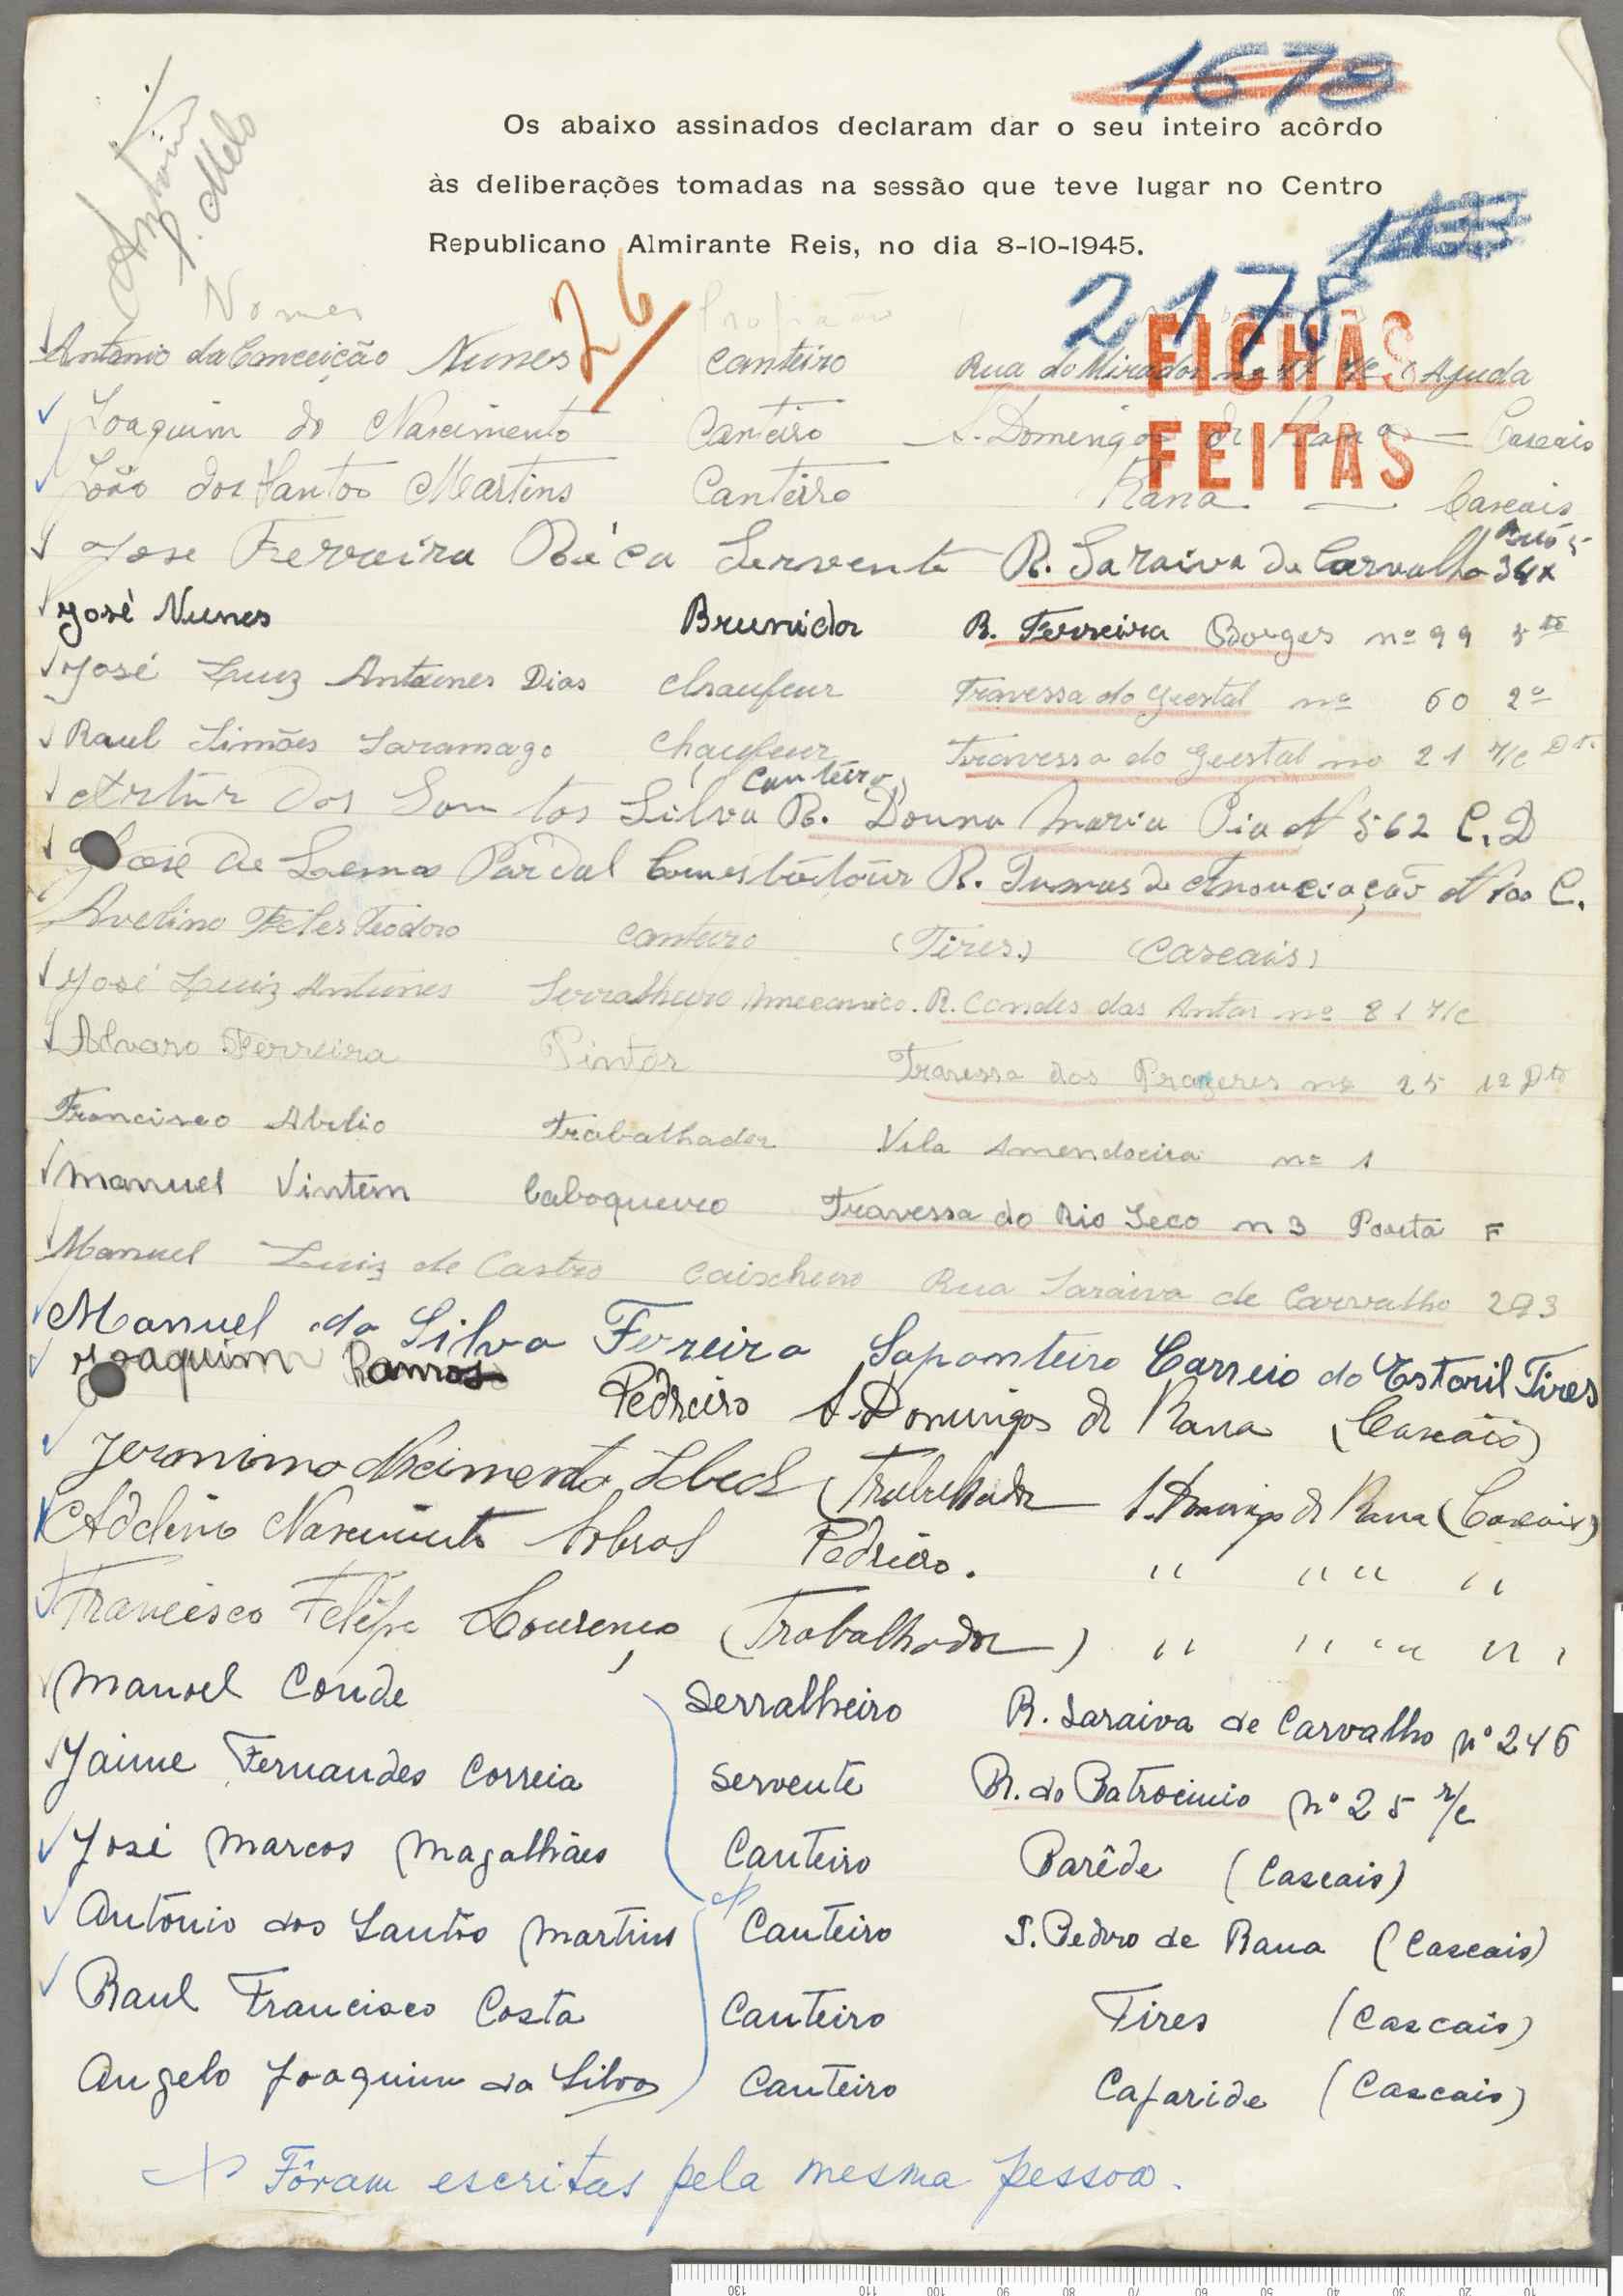 1678
Os abaixo assinados declaram dar o seu inteiro acôrdo
às deliberações tomadas na sessão que teve lugar no Centro
Republicano Almirante Reis, no dia 8-10-1945.
António
P. Melo
26
2178
Nomes Profissão
FICHAS
FEITAS
Antonio da Conceição Nunes canteiro Rua do Mirador nº r/c Ajuda
Joaquim do Nascimento Canteiro S. Domingos de Rana — Cascais
João dos Santos Martins Canteiro Rana — Cascais
Jose Ferreira Róca Servente R. Saraiva de Carvalho
José Nunes Brunidor R. Ferreira Borges nº 99
José Luiz Antunes Dias chaufeur Travessa do Giestal nº 60 2º
Raul Simões Saramago chaufeur Travessa do Giestal no 21 r/c Dto
Artur Dos Santos Silva Canteiro R. Douna Maria Pia Nº 562 C. D
José de Lemos Pardal R. Tumas de Anounciação Nº 100 C.
Avelino Teles Teodoro canteiro (Tires) (Cascais)
José Luiz Antunes Serralheiro mecanico. R. Condes das Antas nº 81 r/c
Alvaro Ferreira Pintor Travessa dos Prazeres nº 25 1º Dto
Francisco Abilio Trabalhador Vila Amendoeira nº 1
Manuel Vintem Caboqueiro Travessa do Rio Seco n 3 Porta F
Manuel Luiz de Castro caischeiro Rua Saraiva de Carvalho 293
Manuel da Silva Fereira Saponteiro Carreio do Estoril Tires
Joaquim Ramos Pedreiro S. Domingos de Rana (Cascais)
Jeronimo Nscimento Sobral (Trabalhador S. Domingos de Rana (Cascais)
Adelino Nascimento Sobral Pedreiro. " " " "
Francisco Felipe Lourenço (Trabalhador) " " " "
Manoel Conde Serralheiro R. Saraiva de Carvalho nº 246
Jaime Fernandes Correia Servente R. do Patrocinio nº 25 r/c
José Marcos Magalhães Canteiro Parêde (Cascais)
António dos Santos Martins Canteiro S. Pedro de Rana (Cascais)
Raul Francisco Costa Canteiro Tires (Cascais)
Angelo Joaquim da Silva Canteiro Caparide (Cascais)
Fôram escritas pela mesma pessoa.
130 110 100 90 80 70 60 50 40 30 20 10